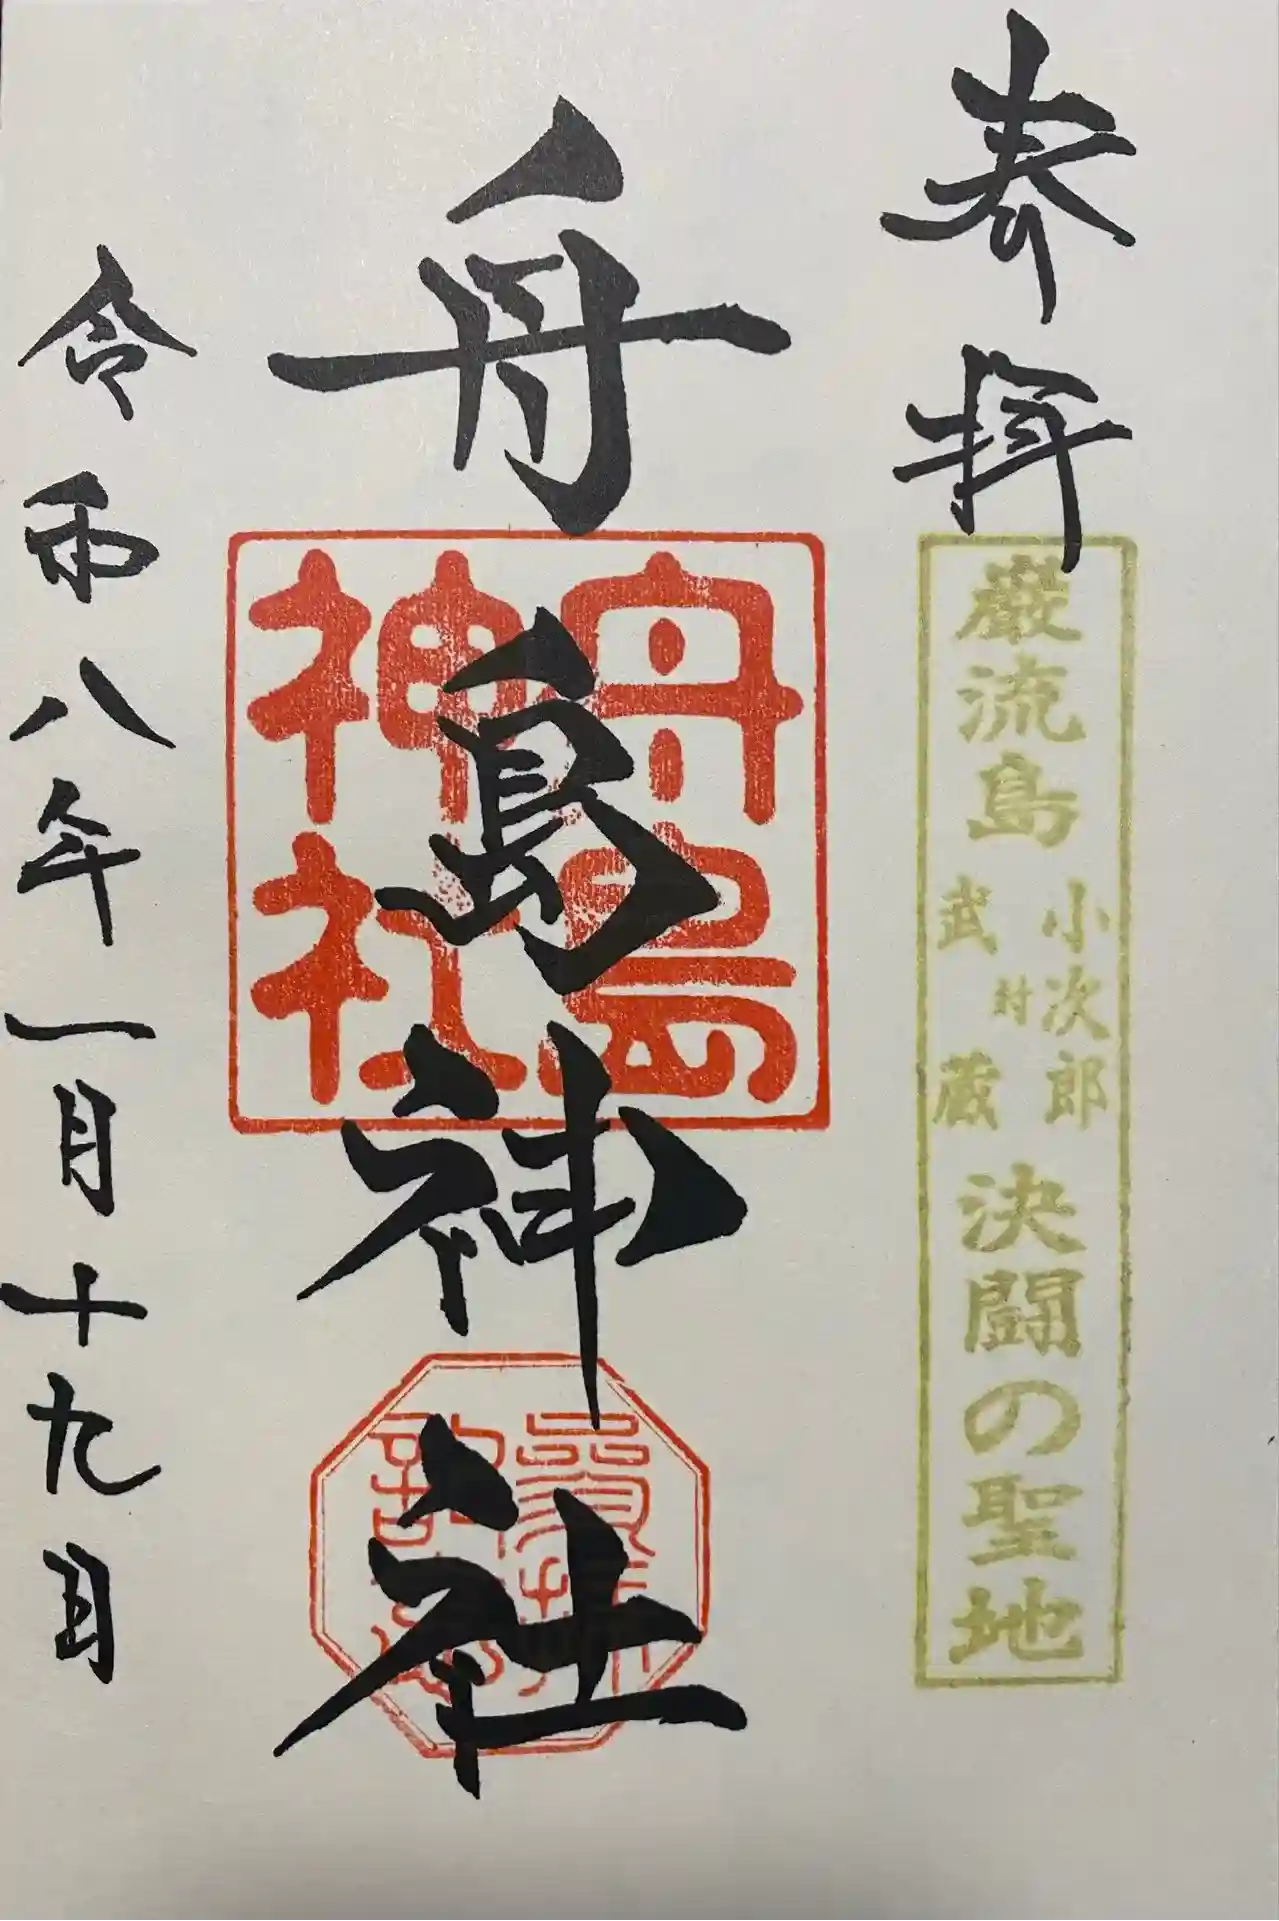 奉拝
巌流島
小次郎
対
武蔵
決闘の聖地
舟島神社
舟島
神社
令和八年一月十九日